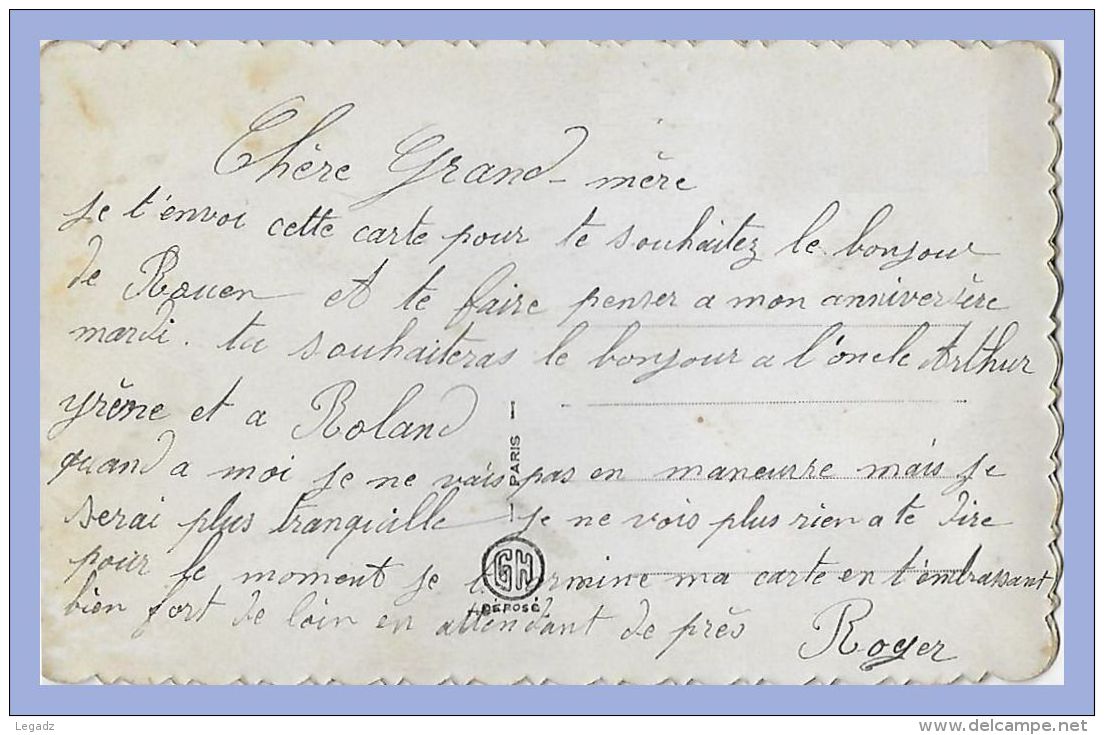 Chère Grand-mère
je t'envoi cette carte pour te souhaitez le bonjour
de Rouen et te faire penser a mon anniversère
mardi. tu souhaiteras le bonjour a l'oncle Arthur
yrène et a Roland
quand a moi je ne vais pas en maneuvre mais je
serai plus tranquille je ne vois plus rien a te dire
pour le moment je termine ma carte en t'embrassant
bien fort de loin en attendant de près
Roger
PARIS
GH
DÉPOSÉ
Legadz
www.delcampe.net